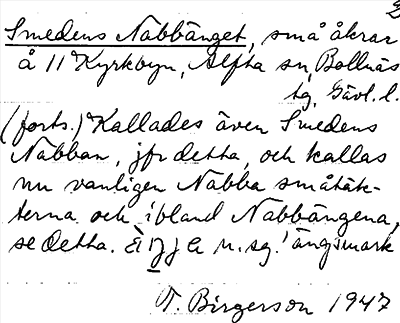 Smedens Nabbänget, små åkrar
å 11 Kyrkbyn, Alfta sn, Bollnäs
tg, Gävl. l.
(forts.) Kallades även Smedens
Nabban, jfr detta, och kallas
nu vanligen Nabba småtäk-
terna och ibland Nabbängena,
se detta. n. sg. 'ängsmark
T. Birgerson 1947